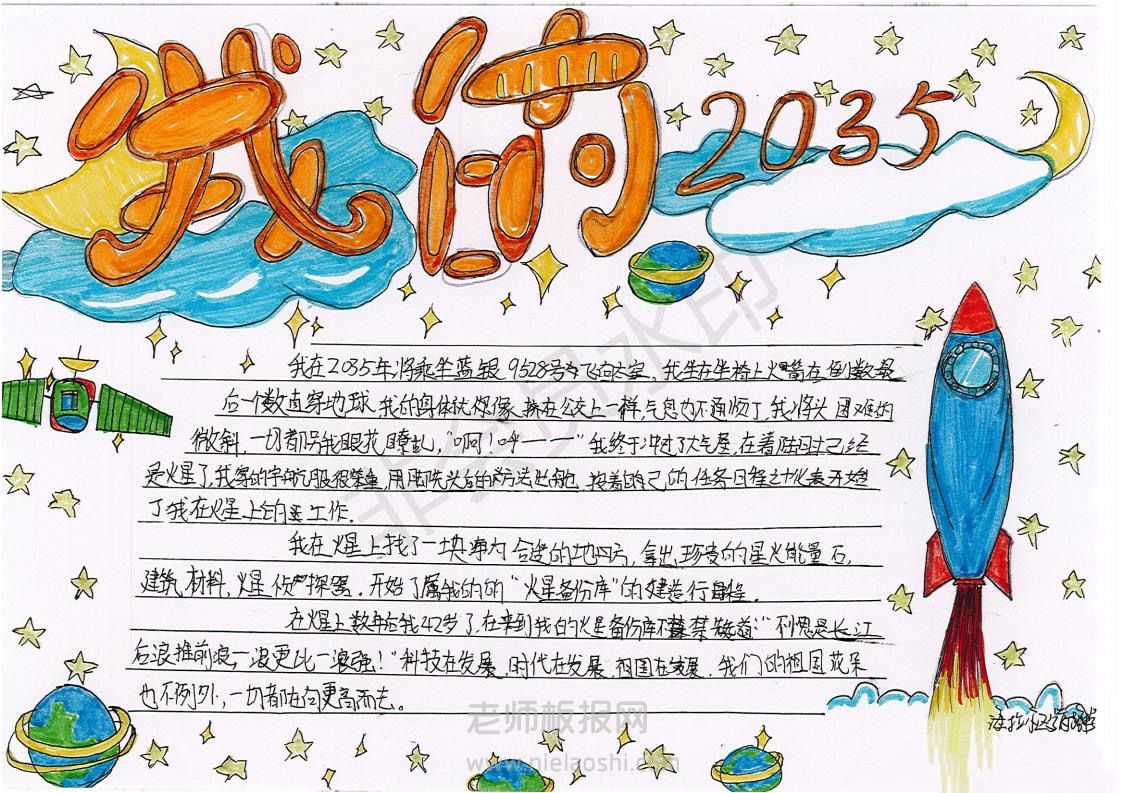 我的2035
我在2035年将乘坐蓝银9528号飞向太空,我坐在坐椅上火箭在倒数最
后一个数直穿地球,我的身体就想像挤在公交上一样,气息也不通顺了,我将头困难的
微斜,一切都另我眼花瞭乱,"啊!呼——"我终于冲过了大气层,在着陆时已经
是火星了,我穿的宇航服很笨重,用出舱,按着自己的任务日程计划表开始
了我在火星上的工作.
我在火星上找了一块合适的地方,拿出珍贵的星火能量石,
建筑材料,火星探器.开始了属我的的"火星备份库"的建造行程.
在火星上数年后我42岁了,在来到我的火星备份库不禁"不愧是长江
后浪推前浪,一浪更比一浪强!"科技在发展,时代在发展,祖国在发展,我们的祖国
也不例外,一切都在向更高而去。
非会员水印
老师板报网
www.nielaoshi.com